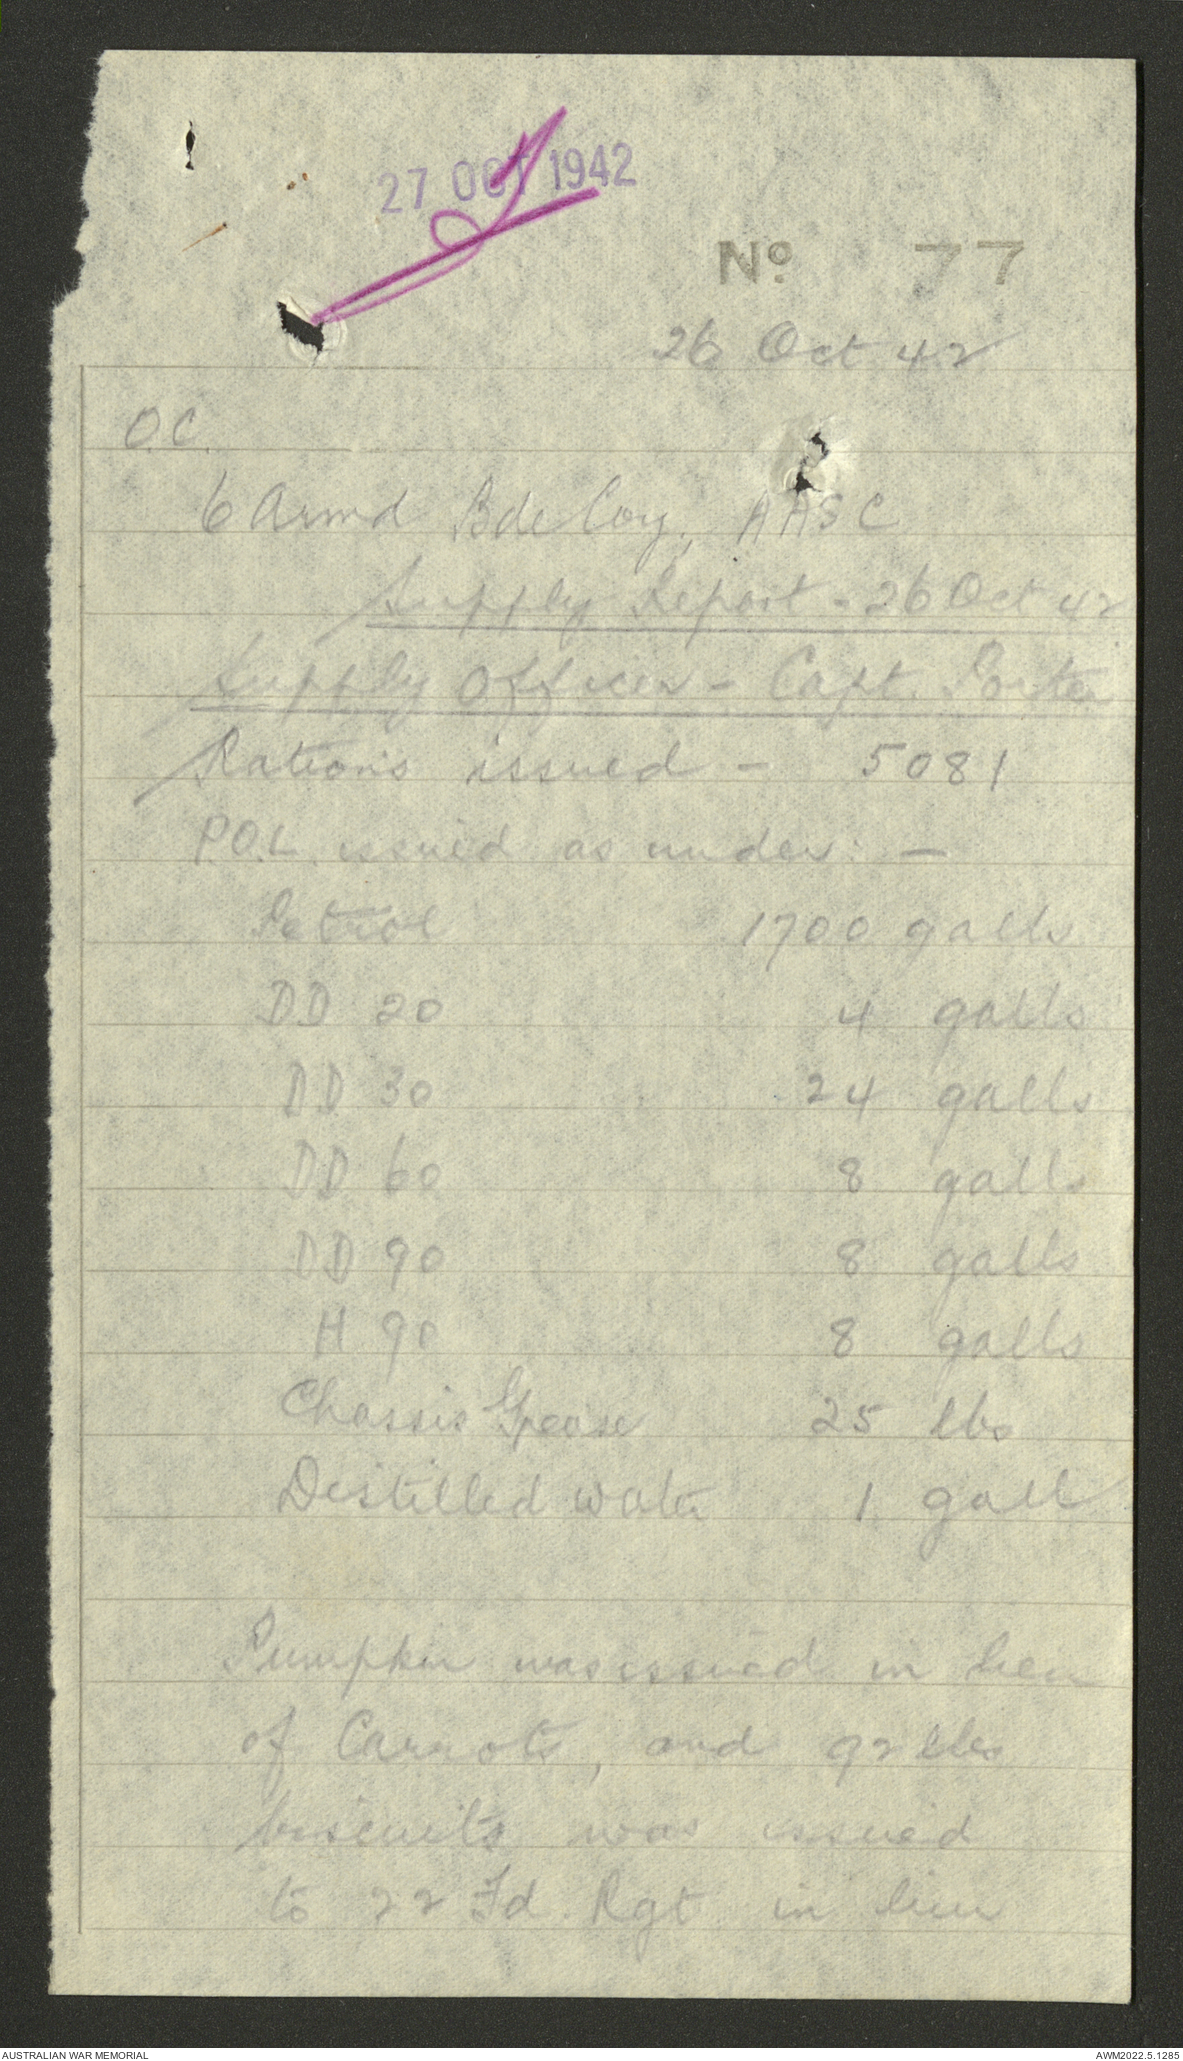 27 OCT 1942
No 77
26 Oct 42
O.C.
6 Armd Bde Coy, AASC
Supply Report - 26 Oct 42
Supply Officer - Capt. Porter
Rations issued - 5081
P.O.L. issued as under: -
Petrol 1700 galls
DD 20 4 galls
DD 30 24 galls
DD 60 8 galls
DD 90 8 galls
H 90 8 galls
Chassis Grease 25 lbs
Distilled water 1 gall
Pumpkin was issued in lieu
of Carrots, and 92 lbs
biscuits was issued
to 22 Fd. Rgt in lieu
AUSTRALIAN WAR MEMORIAL
AWM2022.5.1285